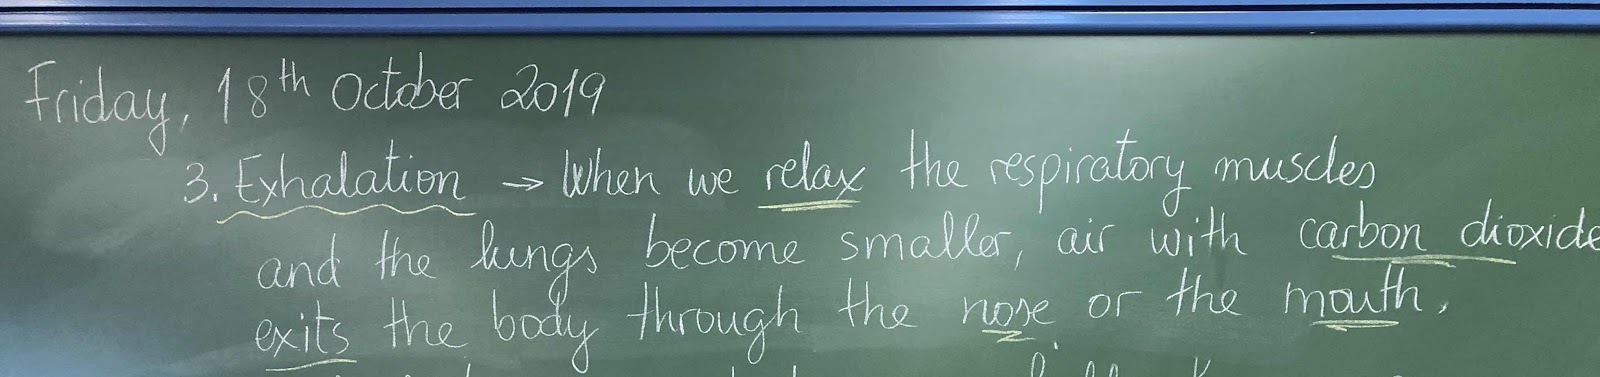 Friday, 18th October 2019
3. Exhalation → When we relax the respiratory muscles
and the lungs become smaller, air with carbon dioxide
exits the body through the nose or the mouth.